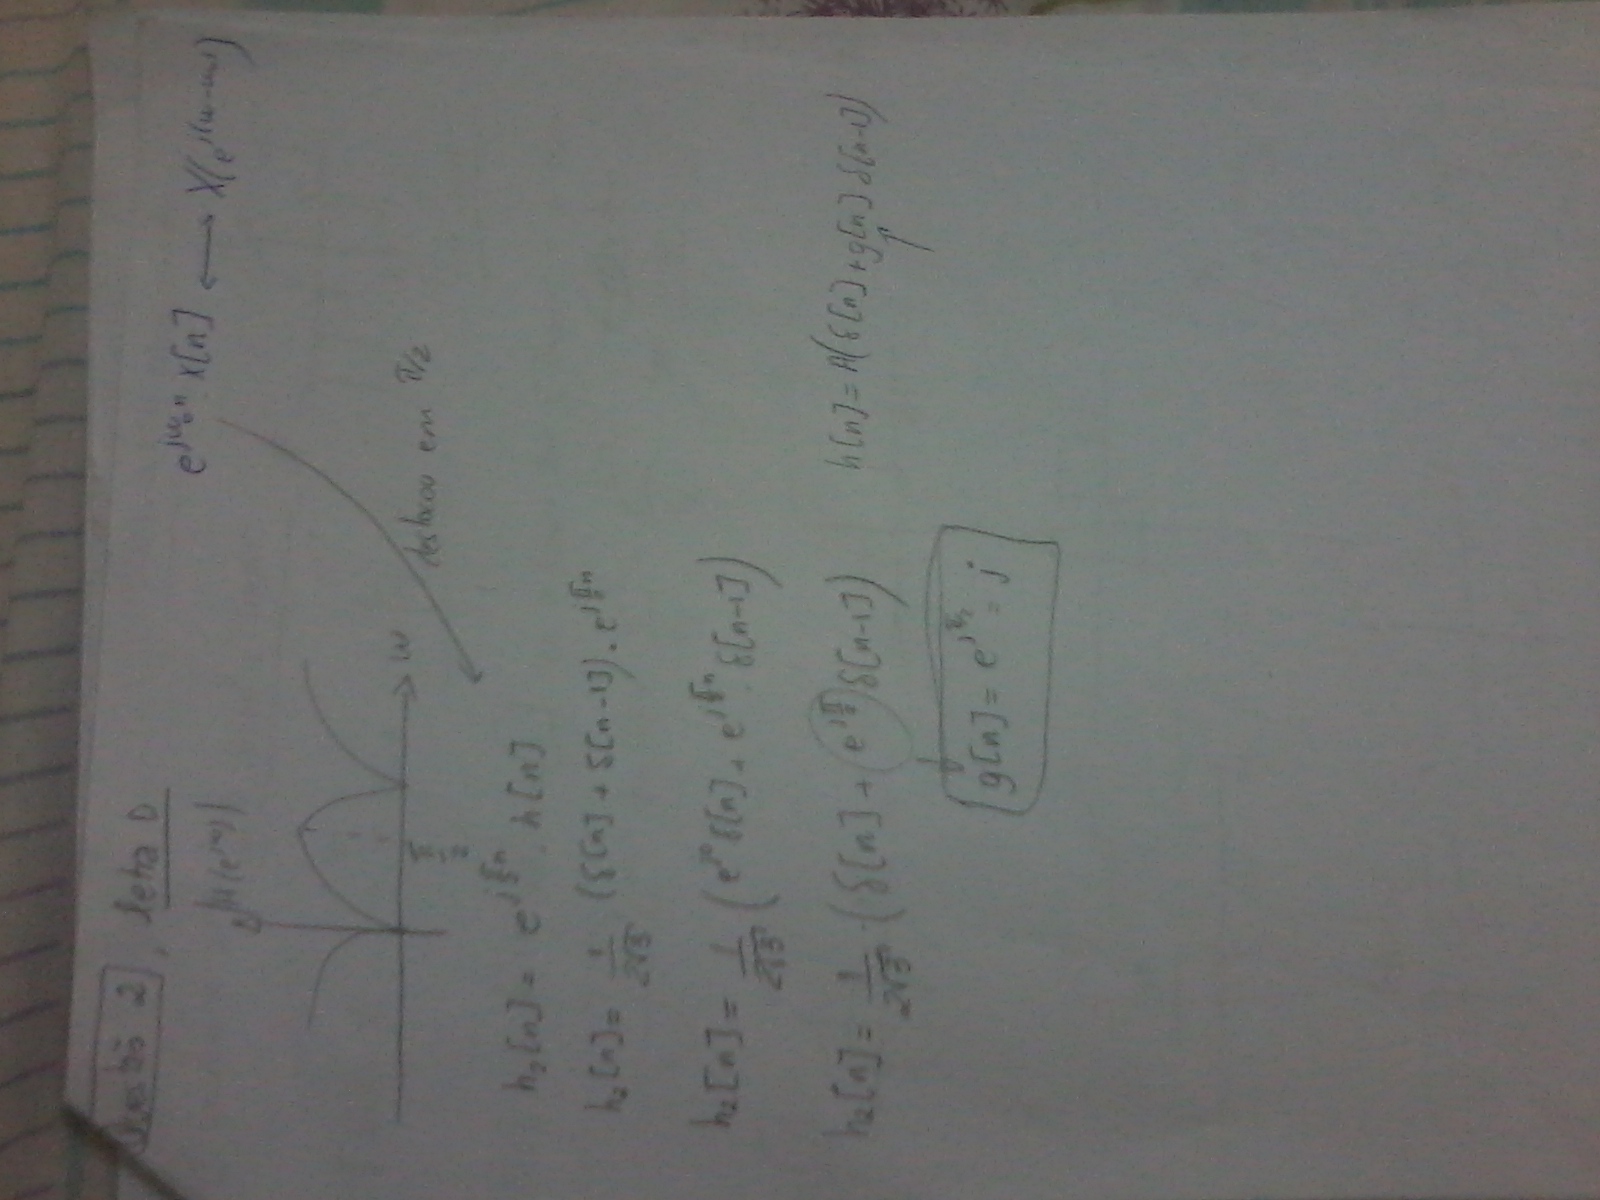 Questão 2, letra D
|H(e^{jω})|
e^{jω₀n}.x[n] ⟷ X(e^{j(ω-ω₀)})
ω
π/2
deslocou em π/2
h₂[n] = e^{jπ/2 n}.h[n]
h₂[n] = 1/(2√3) (δ[n] + δ[n-1]).e^{jπ/2 n}
h₂[n] = 1/(2√3) (e^{j0} δ[n] + e^{jπ/2 n}.δ[n-1])
h₂[n] = 1/(2√3) .(δ[n] + e^{jπ/2} δ[n-1])
h[n] = A(δ[n] + g[n] δ[n-1])
g[n] = e^{jπ/2} = j